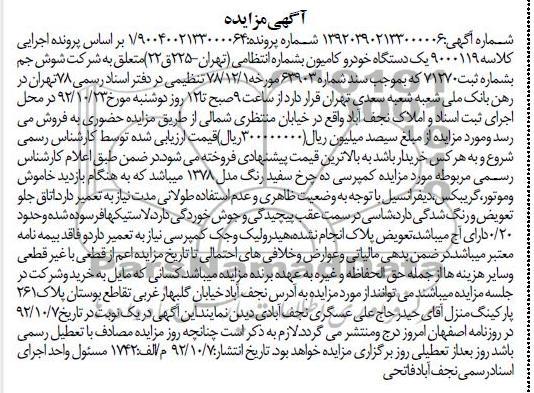 آگهی مزایده
شماره آگهی:۱۳۹۲۰۳۹۰۲۱۳۳۰۰۰۰۰۶ شماره پرونده:۱/۹۰۰۴۰۰۲۱۳۳۰۰۰۰۶۴ بر اساس پرونده اجرایی
کلاسه ۹۰۰۰۱۱۹ یک دستگاه خودرو کامیون بشماره انتظامی (تهران-۲۲۵ق۲۲)متعلق به شرکت شوش جم
بشماره ثبت۷۱۲۷۰ که بموجب سند شماره۶۳۹۰۴ مورخه۷۸/۱۲/۱ تنظیمی در دفتر اسناد رسمی۷۸تهران در
رهن بانک ملی شعبه شعبه سعدی تهران قرار دارد از ساعت۹صبح تا۱۲ روز دوشنبه مورخ۹۲/۱۰/۲۳ در محل
اجرای ثبت اسناد و املاک نجف آباد واقع در خیابان منتظری شمالی از طریق مزایده حضوری به فروش می
رسد ومورد مزایده از مبلغ سیصد میلیون ریال(۳۰۰۰۰۰۰۰۰ریال)قیمت ارزیابی شده توسط کارشناس رسمی
شروع و به هر کس خریدار باشد به بالاترین قیمت پیشنهادی فروخته می شود.در ضمن طبق اعلام کارشناس
رسمی مربوطه مورد مزایده کمپرسی ده چرخ سفید رنگ مدل ۱۳۷۸ میباشد که به هنگام بازدید خاموش
وموتور،گریبکس،دیفرانسیل با توجه به وضعیت ظاهری و عدم استفاده طولانی مدت نیاز به تعمیر دارد،اتاق جلو
تعویض و رنگ شدگی دارد،شاسی در سمت عقب پیچیدگی و جوش خوردگی دارد،لاستیکها فرسوده شده وحدود
۰/۲۰دارای آج میباشد،تعویض پلاک انجام نشده،هیدرولیک وجک کمپرسی نیاز به تعمیر دارد و فاقد بیمه نامه
معتبر میباشد.در ضمن بدهی مالیاتی وعوارض وخلافی های احتمالی تا تاریخ مزایده اعم از قطعی یا غیر قطعی
وسایر هزینه ها از جمله حق الحفاظه و غیره به عهده برنده مزایده میباشد.کسانی که مایل به خرید وشرکت در
جلسه مزایده میباشند می توانند از مورد مزایده به آدرس نجف آباد خیابان گلبهار غربی تقاطع بوستان پلاک۲۶۱
پارکینگ منزل آقای حیدر حاج علی عسگری نجف آبادی دیدن نمایند.این آگهی در یک نوبت در تاریخ۹۲/۱۰/۷
در روزنامه اصفهان امروز درج ومنتشر می گردد.لازم به ذکر است چنانچه روز مزایده مصادف با تعطیل رسمی
باشد روز بعد از تعطیلی روز برگزاری مزایده خواهد بود. تاریخ انتشار:۹۲/۱۰/۷ م/الف:۱۷۴۲ مسئول واحد اجرای
اسناد رسمی نجف آباد فاتحی